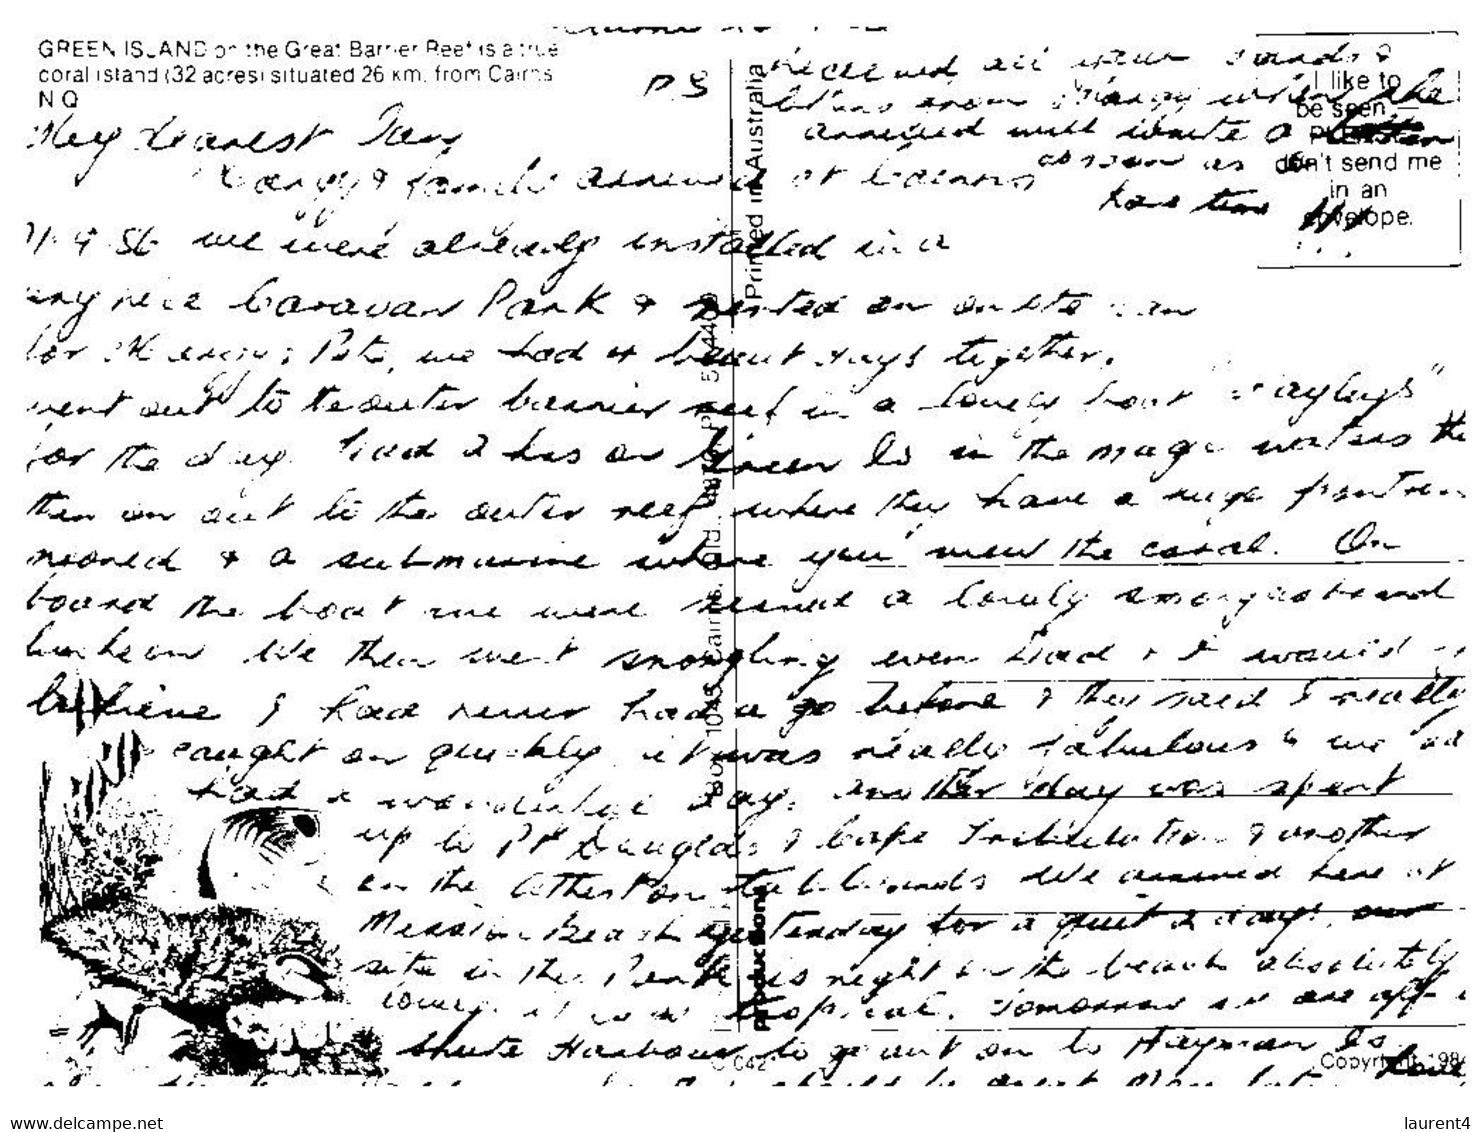 GREEN ISLAND on the Great Barrier Reef is a true
coral island (32 acres) situated 26 km. from Cairns
N Q
P.S received all your cards &
letters from Margy when she
arrived will write a letter
as soon as I
have time
I like to
be seen —
don't send me
in an
envelope.
My dearest
Margy & family arrived at Cairns
we were already installed in a
very nice Caravan Park & rented an onsite van
for Margy & Pete, we had beaut days together,
went out to the outer barrier reef in a lovely boat "Hayleys"
for the day. had 2 hrs on Green Is in the magic waters
then on out to the outer reef where they have a huge pontoon
moored & a submarine where you view the coral. On
board the boat we were served a lovely smorgasboard
luncheon We then went snorgling even Dad & I would
believe I had never had a go before & they said I really
caught on quickly it was really fabulous & we
had a wonderful day. Another day was spent
up to Pt Douglas & Cape Tribulation & another
on the Atherton tablelands We arrived here at
Mission Beach yesterday for a quiet 2 days, our
site in the Park is right on the beach absolutely
lovely, it is so tropical. Tomorrow we are off
Shute Harbour to go out on to Hayman Is
Printed in Australia
Productions
Box 1045 Cairns
C 042
Copyright 198
delcampe.net
laurent4